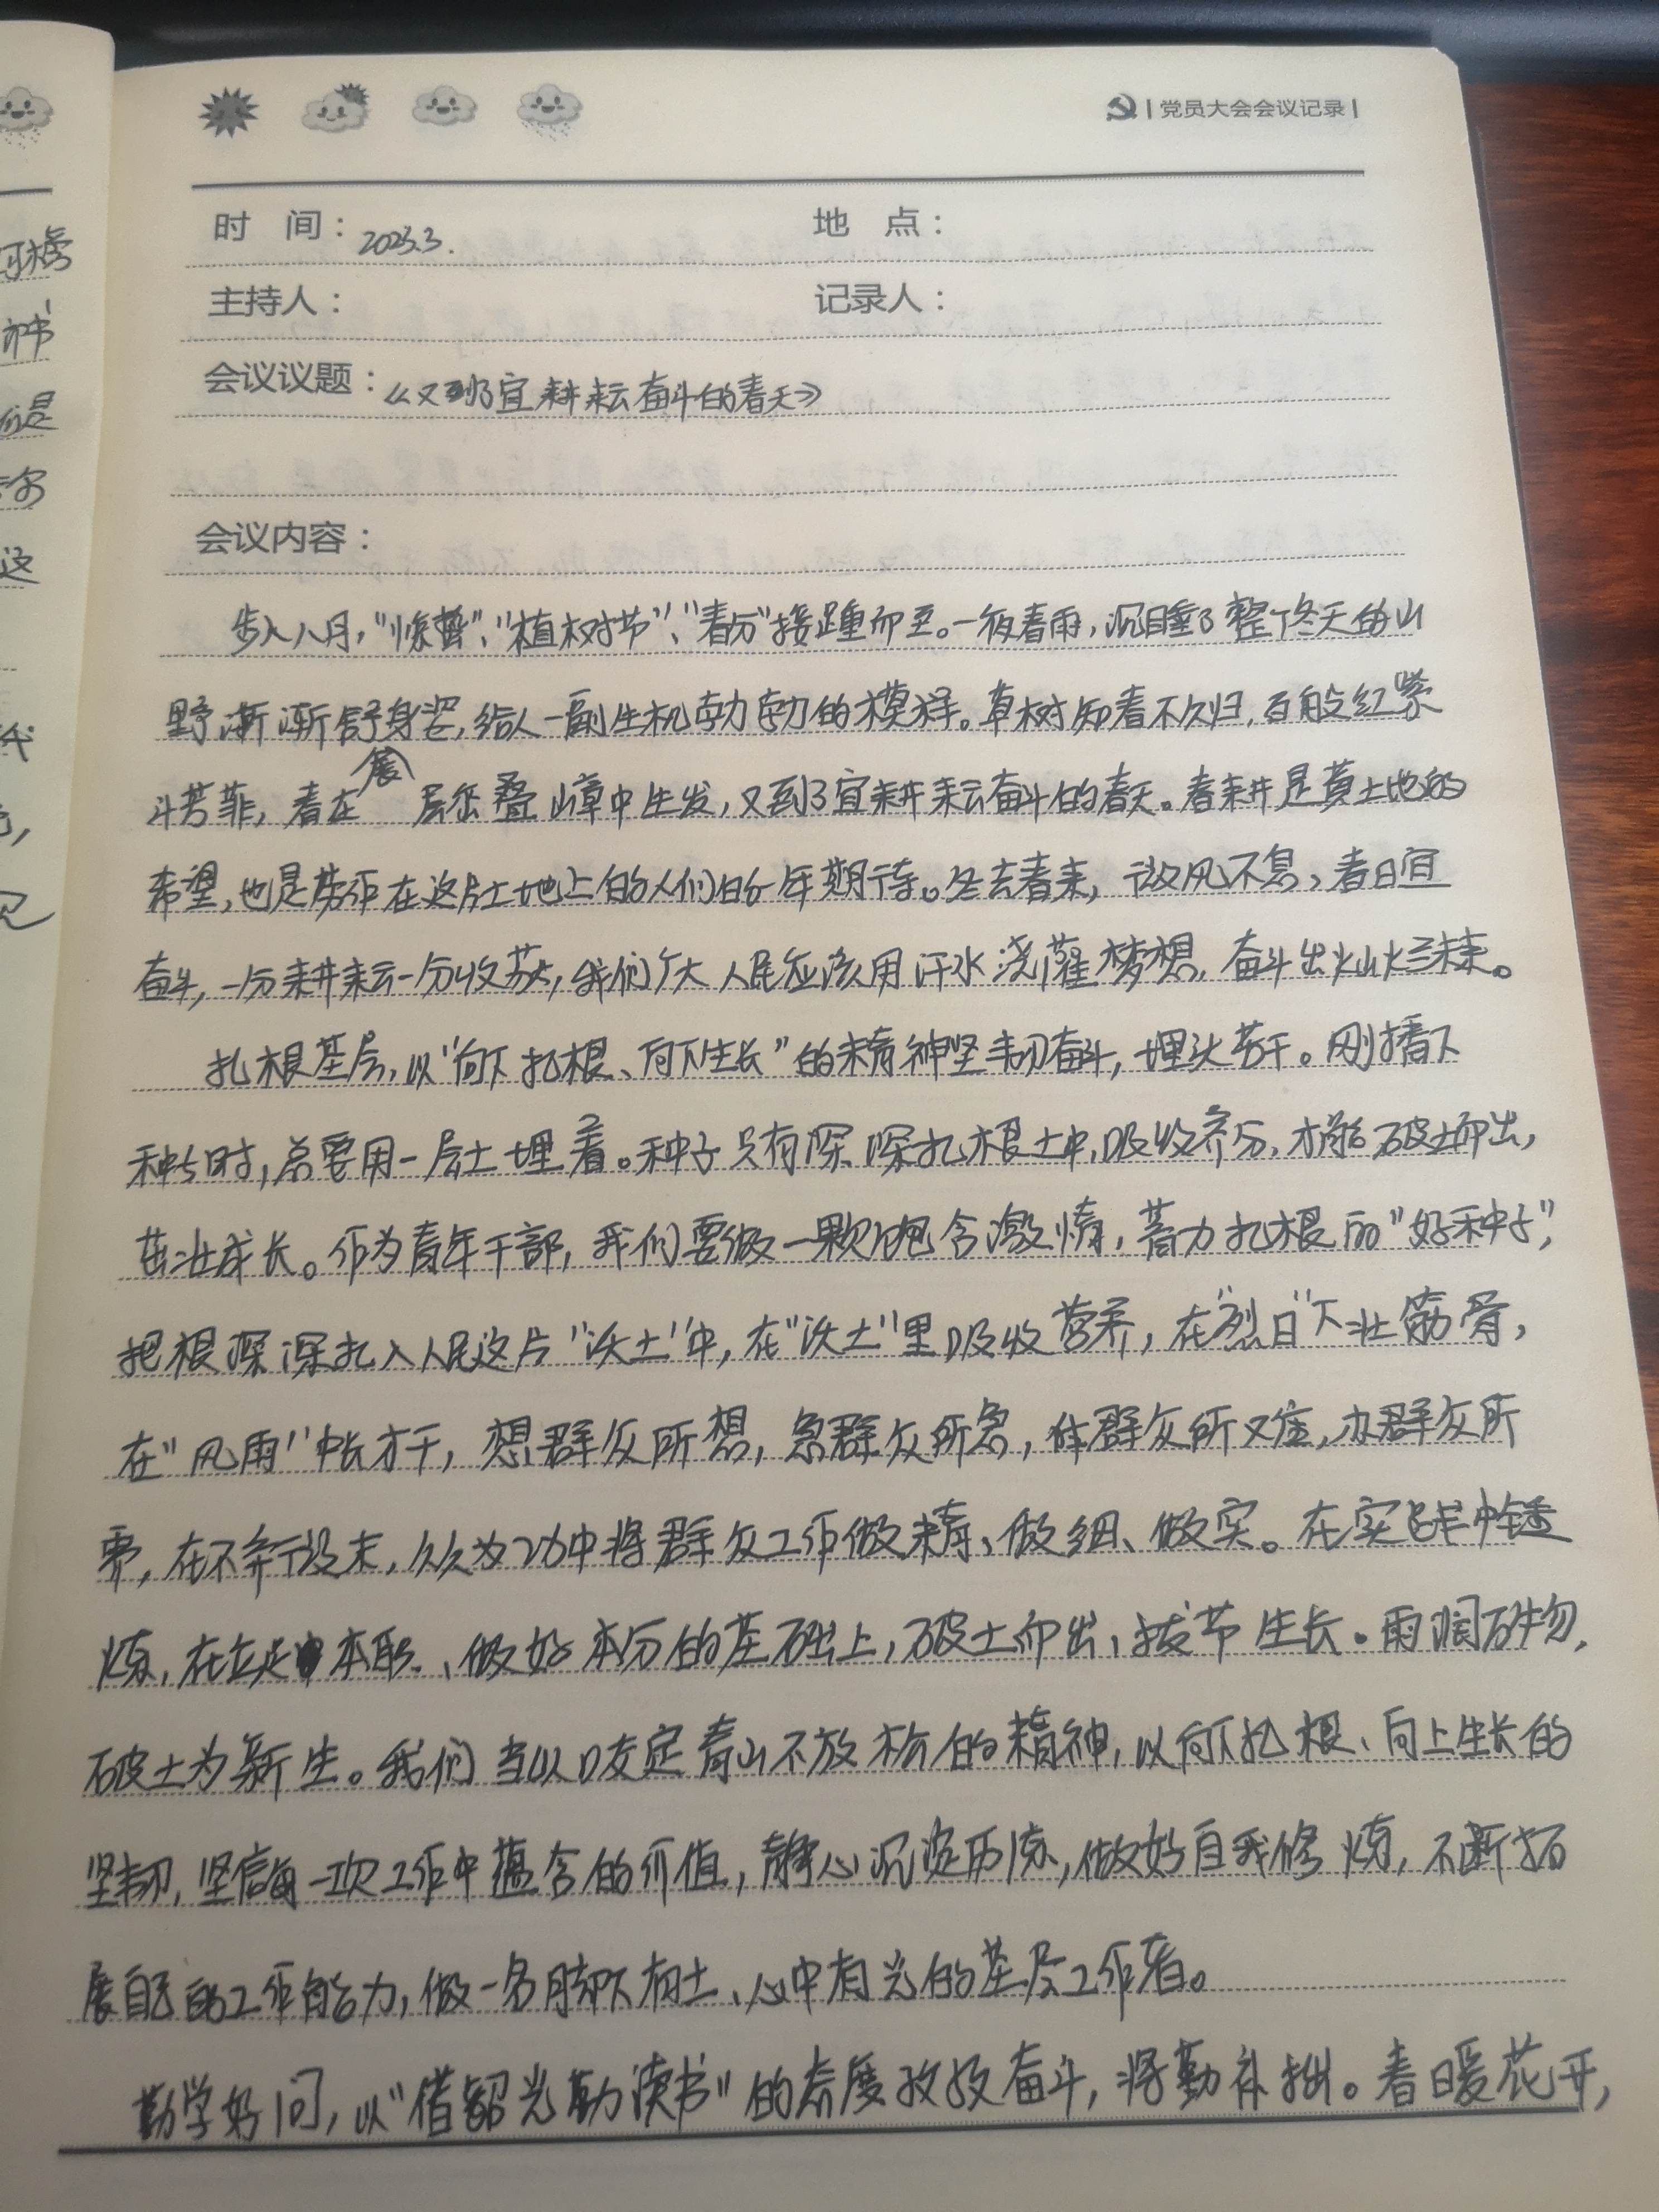 党员大会会议记录
时 间：2023.3. 地 点：
主持人： 记录人：
会议议题：《又到了宜耕耘奋斗的春天》
会议内容：
步入八月，“惊蛰”、“植树节”、“春分”接踵而至。一夜春雨，沉睡了整个冬天的山
野渐渐舒展身姿，给人一副生机勃勃的模样。草树知春不久归，百般红紫
斗芳菲，春在层峦叠嶂中生发，又到了宜耕耘奋斗的春天。春耕是黄土地的
希望，也是劳作在这片土地上的人们的一年期待。冬去春来，改风不息，春日宜
奋斗，一分耕耘一分收获，我们广大人民应该用汗水浇灌梦想，奋斗出灿烂未来。
扎根基层，以“向下扎根、向下生长”的精神坚韧奋斗，埋头苦干。刚播下
种子时，总要用一层土埋着。种子只有深深扎根土中，吸收养分，才能破土而出，
茁壮成长。作为青年干部，我们要做一颗饱含激情，蓄力扎根的“好种子”，
把根深深扎入人民这片“沃土”中，在“沃土”里吸收营养，在“烈日”下壮筋骨，
在“风雨”中长才干，想群众所想，急群众所急，解群众所难，办群众所
需，在不弃微末，久久为功中将群众工作做精、做细、做实。在实践中锤
炼，在立足本职、做好本分的基础上，破土而出，拔节生长。雨润万物，
破土为新生。我们当以咬定青山不放松的精神，以向下扎根、向上生长的
坚韧，坚信每一次工作中蕴含的价值，静心沉淀历练，做好自我修炼，不断拓
展自己的工作能力，做一名脚下有土、心中有光的基层工作者。
勤学好问，以“借韶光勤读书”的态度孜孜奋斗，将勤补拙。春日暖花开，